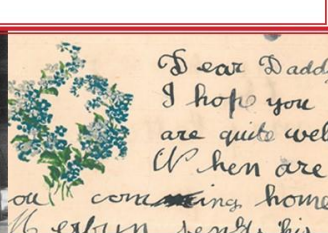 Dear Dadd
I hope you
are quite wel
When are
ou coming home
Merfyn sends his